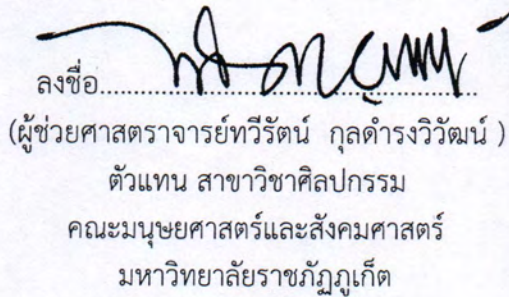 ลงชื่อ........................................................
(ผู้ช่วยศาสตราจารย์ทวีรัตน์ กุลดำรงวิวัฒน์ )
ตัวแทน สาขาวิชาศิลปกรรม
คณะมนุษยศาสตร์และสังคมศาสตร์
มหาวิทยาลัยราชภัฏภูเก็ต